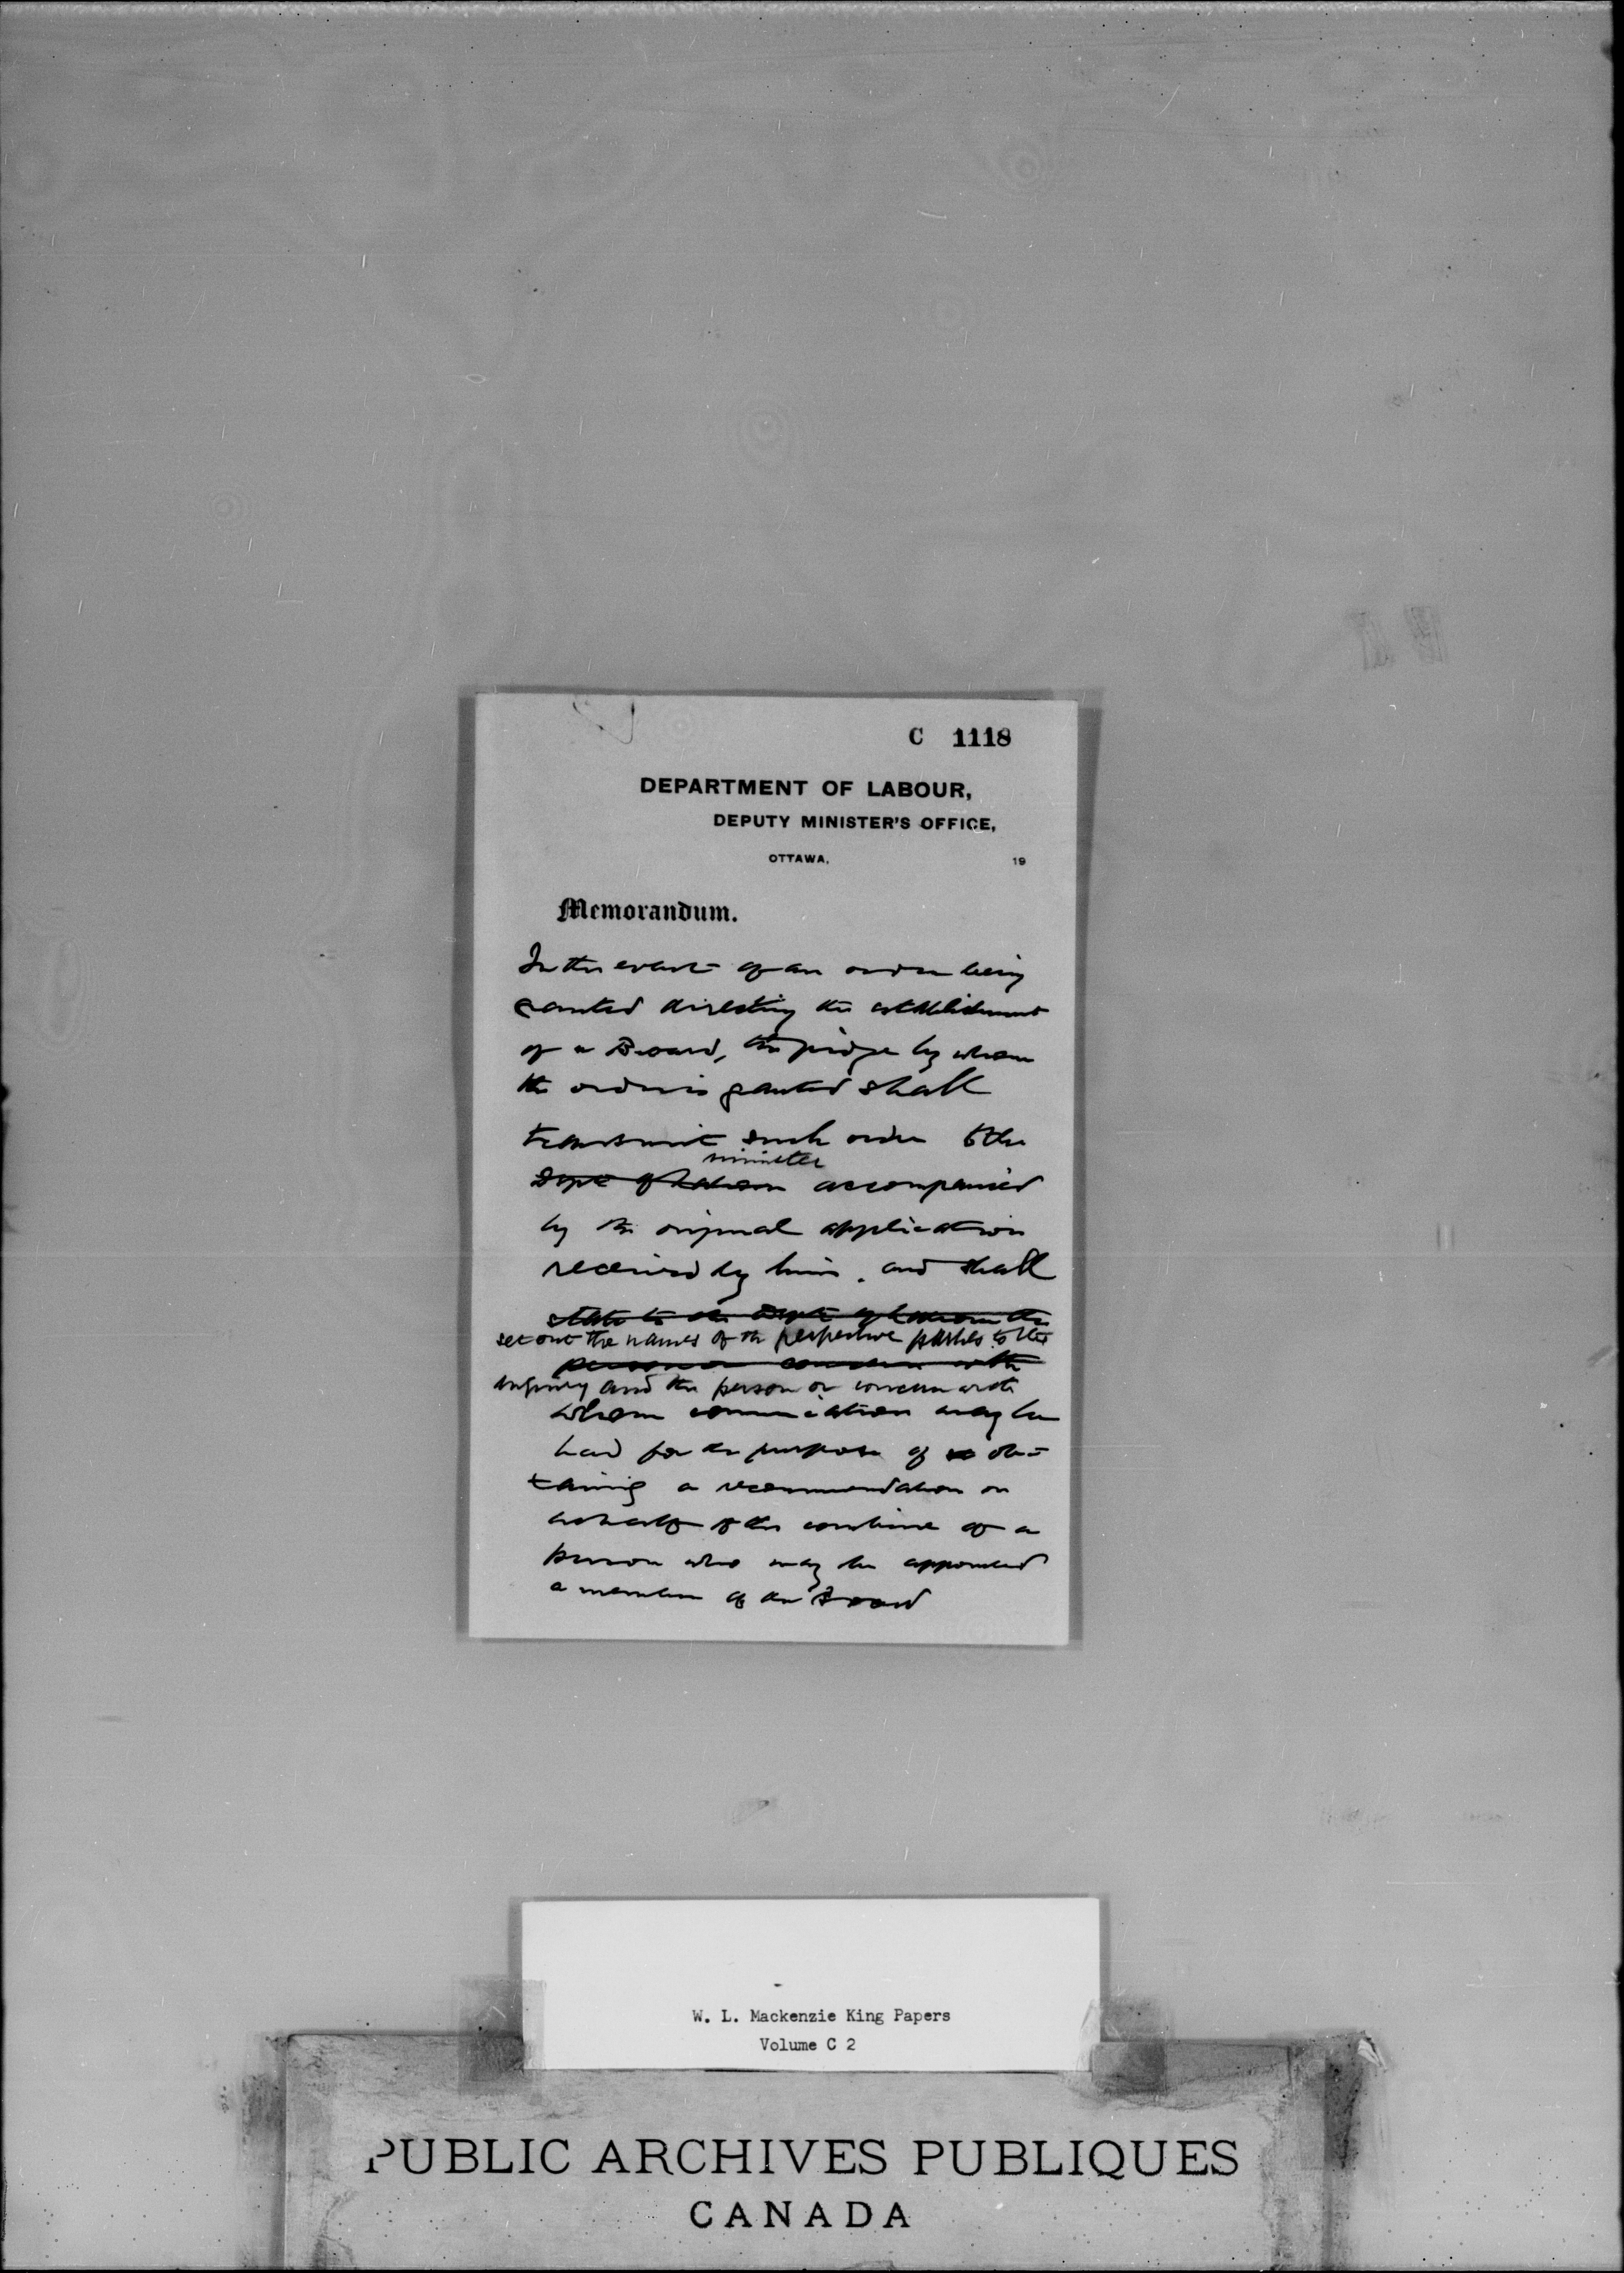 C 1118
DEPARTMENT OF LABOUR,
DEPUTY MINISTER'S OFFICE,
OTTAWA, 19
Memorandum.
In the event of an order being
granted directing the establishment
of a Board, the judge by whom
the order is granted shall
transmit such order to the
minister
Dept of Labour accompanied
by the original application
received by him, and shall
state to the Dept of Labour the
set out the names of the respective parties to the
person or concern with
inquiry and the person or concern with
whom communication may be
had for the purpose of ob-
taining a recommendation on
behalf of the combine of a
person who may be appointed
a member of the Board
W. L. Mackenzie King Papers
Volume C 2
PUBLIC ARCHIVES PUBLIQUES
CANADA